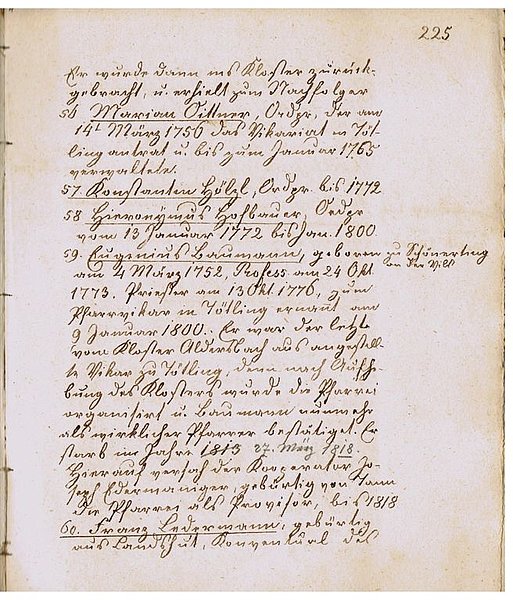 225
Er wurde dann ins Kloster zurück-
gebracht, u. erhielt zum Nachfolger
56. Marian Sittner, Ordpr., der am
14t März 1756 das Vikariat in Töt-
ling antrat u. bis zum Januar 1765
verwaltete.
57. Konstantin Hölzl, Ordpr. bis 1772
58 Hieronymus Hofbauer, Ordpr
vom 13 Januar 1772 bis Jan. 1800
59. Eugenius Baumann, geboren zu Schönerting
an der Vils
am 4 März 1752, Profess am 24 Okt.
1773. Priester am 13 Okt 1776, zum
Pfarrvikar in Tötling ernannt am
9 Januar 1800. Er war der letzte
vom Kloster Aldersbach aus angestell-
te Vikar zu Tötling, denn nach Aufhe-
bung des Klosters wurde die Pfarrei
organisirt u. Baumann nunmehr
als wirklicher Pfarrer bestätiget. Er
starb im Jahre 1813 27. März 1818.
Hierauf versah der Kooperator Jo-
seph Edermaniger, gebürtig von Tann
die Pfarrei als Provisor, bis 1818
60. Franz Ledermann, gebürtig
aus Landshut, Konventual des